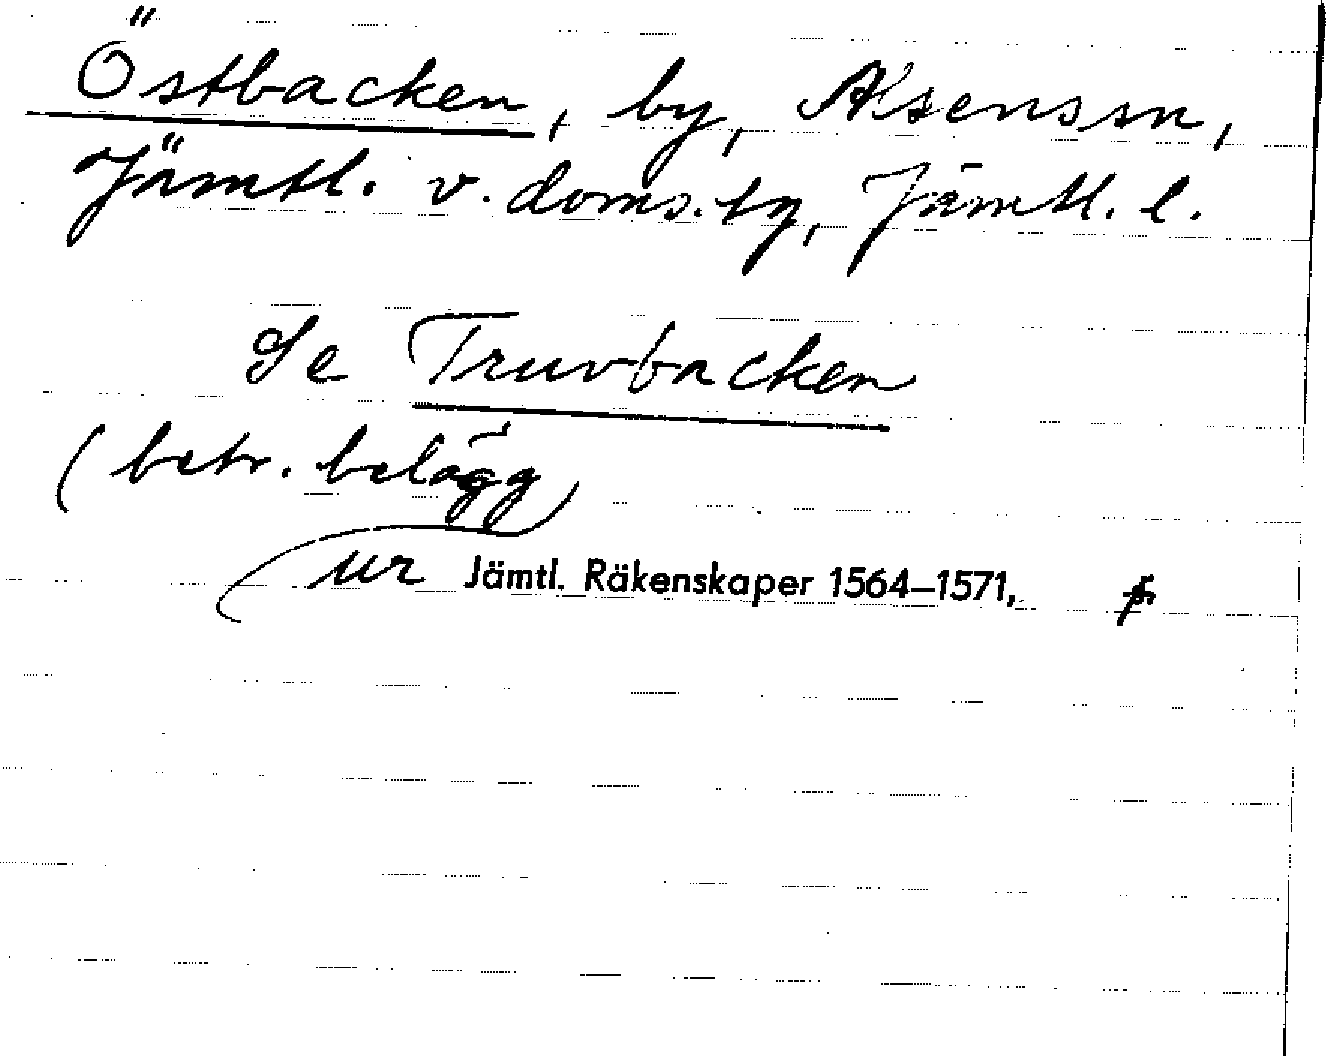 Östbacken, by, Alsens sn,
Jämtl. v. doms. tg, Jämtl. l.
Se Truvbacken
(betr. belägg)
ur Jämtl. Räkenskaper 1564–1571,